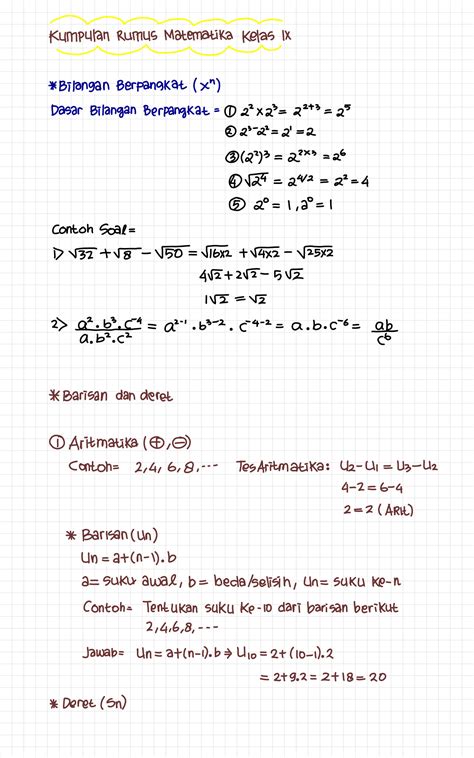 Kumpulan Rumus Matematika Kelas IX
*Bilangan Berpangkat (xⁿ)
Dasar Bilangan Berpangkat = ① 2² x 2³ = 2²⁺³ = 2⁵
② 2³⁻2² = 2¹ = 2
③ (2²)³ = 2²ˣ³ = 2⁶
④ √2⁴ = 2^4/2 = 2² = 4
⑤ 2⁰ = 1, a⁰ = 1
Contoh Soal =
1) √32 + √8 - √50 = √16x2 + √4x2 - √25x2
4√2 + 2√2 - 5√2
1√2 = √2
2) a².b³.c⁻⁴ / a.b².c² = a²⁻¹.b³⁻².c⁻⁴⁻² = a.b.c⁻⁶ = ab / c⁶
* Barisan dan deret
① Aritmatika (⊕,⊖)
Contoh = 2,4,6,8,--- Tes Aritmatika: U2-U1 = U3-U2
4-2 = 6-4
2 = 2 (Arit)
* Barisan (Un)
Un = a+(n-1).b
a = suku awal, b = beda/selisih, Un = suku ke-n
Contoh = Tentukan suku ke-10 dari barisan berikut
2,4,6,8,---
Jawab = Un = a+(n-1).b ⇒ U10 = 2+(10-1).2
= 2+9.2 = 2+18 = 20
* Deret (Sn)